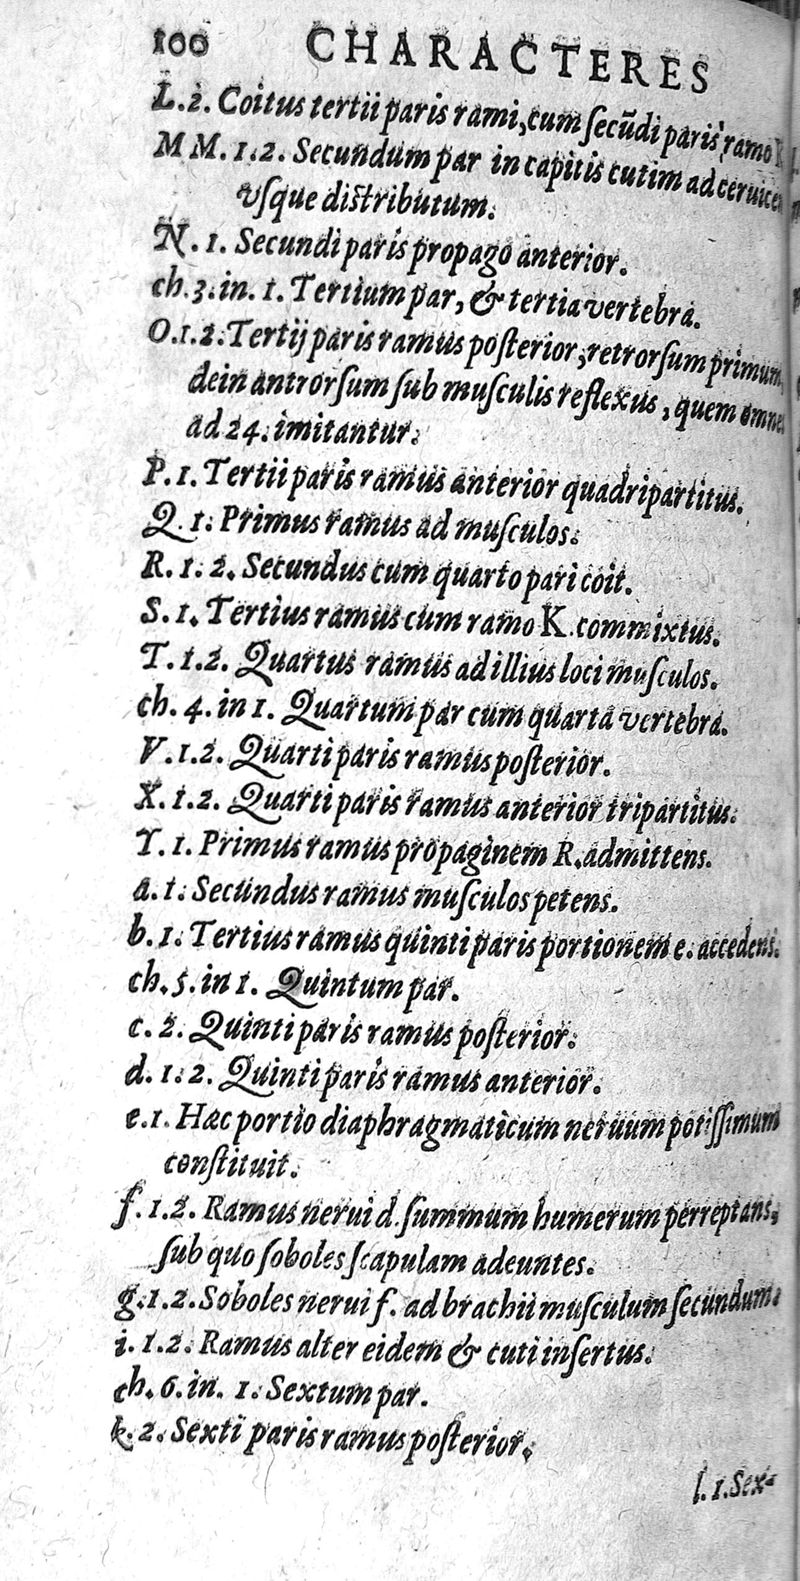 100 CHARACTERES
L.2. Coitus tertii paris rami, cum secūdi paris ramo K
MM. 1.2. Secundum par in capitis cutim ad ceruicem
vsque distributum.
N. 1. Secundi paris propago anterior.
ch. 3. in. 1. Tertium par, & tertia vertebra.
O.1.2. Tertij paris ramus posterior, retrorsum primum,
dein antrorsum sub musculis reflexus, quem omnes
ad 24. imitantur.
P. 1. Tertii paris ramus anterior quadripartitus.
Q. 1. Primus ramus ad musculos.
R. 1. 2. Secundus cum quarto pari coit.
S. 1. Tertius ramus cum ramo K commixtus.
T. 1.2. Quartus ramus ad illius loci musculos.
ch. 4. in 1. Quartum par cum quarta vertebra.
V. 1.2. Quarti paris ramus posterior.
X. 1.2. Quarti paris ramus anterior tripartitus.
Y. 1. Primus ramus propaginem R. admittens.
a. 1. Secundus ramus musculos petens.
b. 1. Tertius ramus quinti paris portionem e. accedens.
ch. 5. in 1. Quintum par.
c. 2. Quinti paris ramus posterior.
d. 1.2. Quinti paris ramus anterior.
e.1. Hæc portio diaphragmaticum neruum potissimum
constituit.
f. 1.2. Ramus nerui d. summum humerum perreptans,
sub quo soboles scapulam adeuntes.
g.1.2. Soboles nerui f. ad brachii musculum secundum.
i. 1.2. Ramus alter eidem & cuti insertus.
ch. 6. in. 1. Sextum par.
k. 2. Sexti paris ramus posterior.
l. 1. Sex-